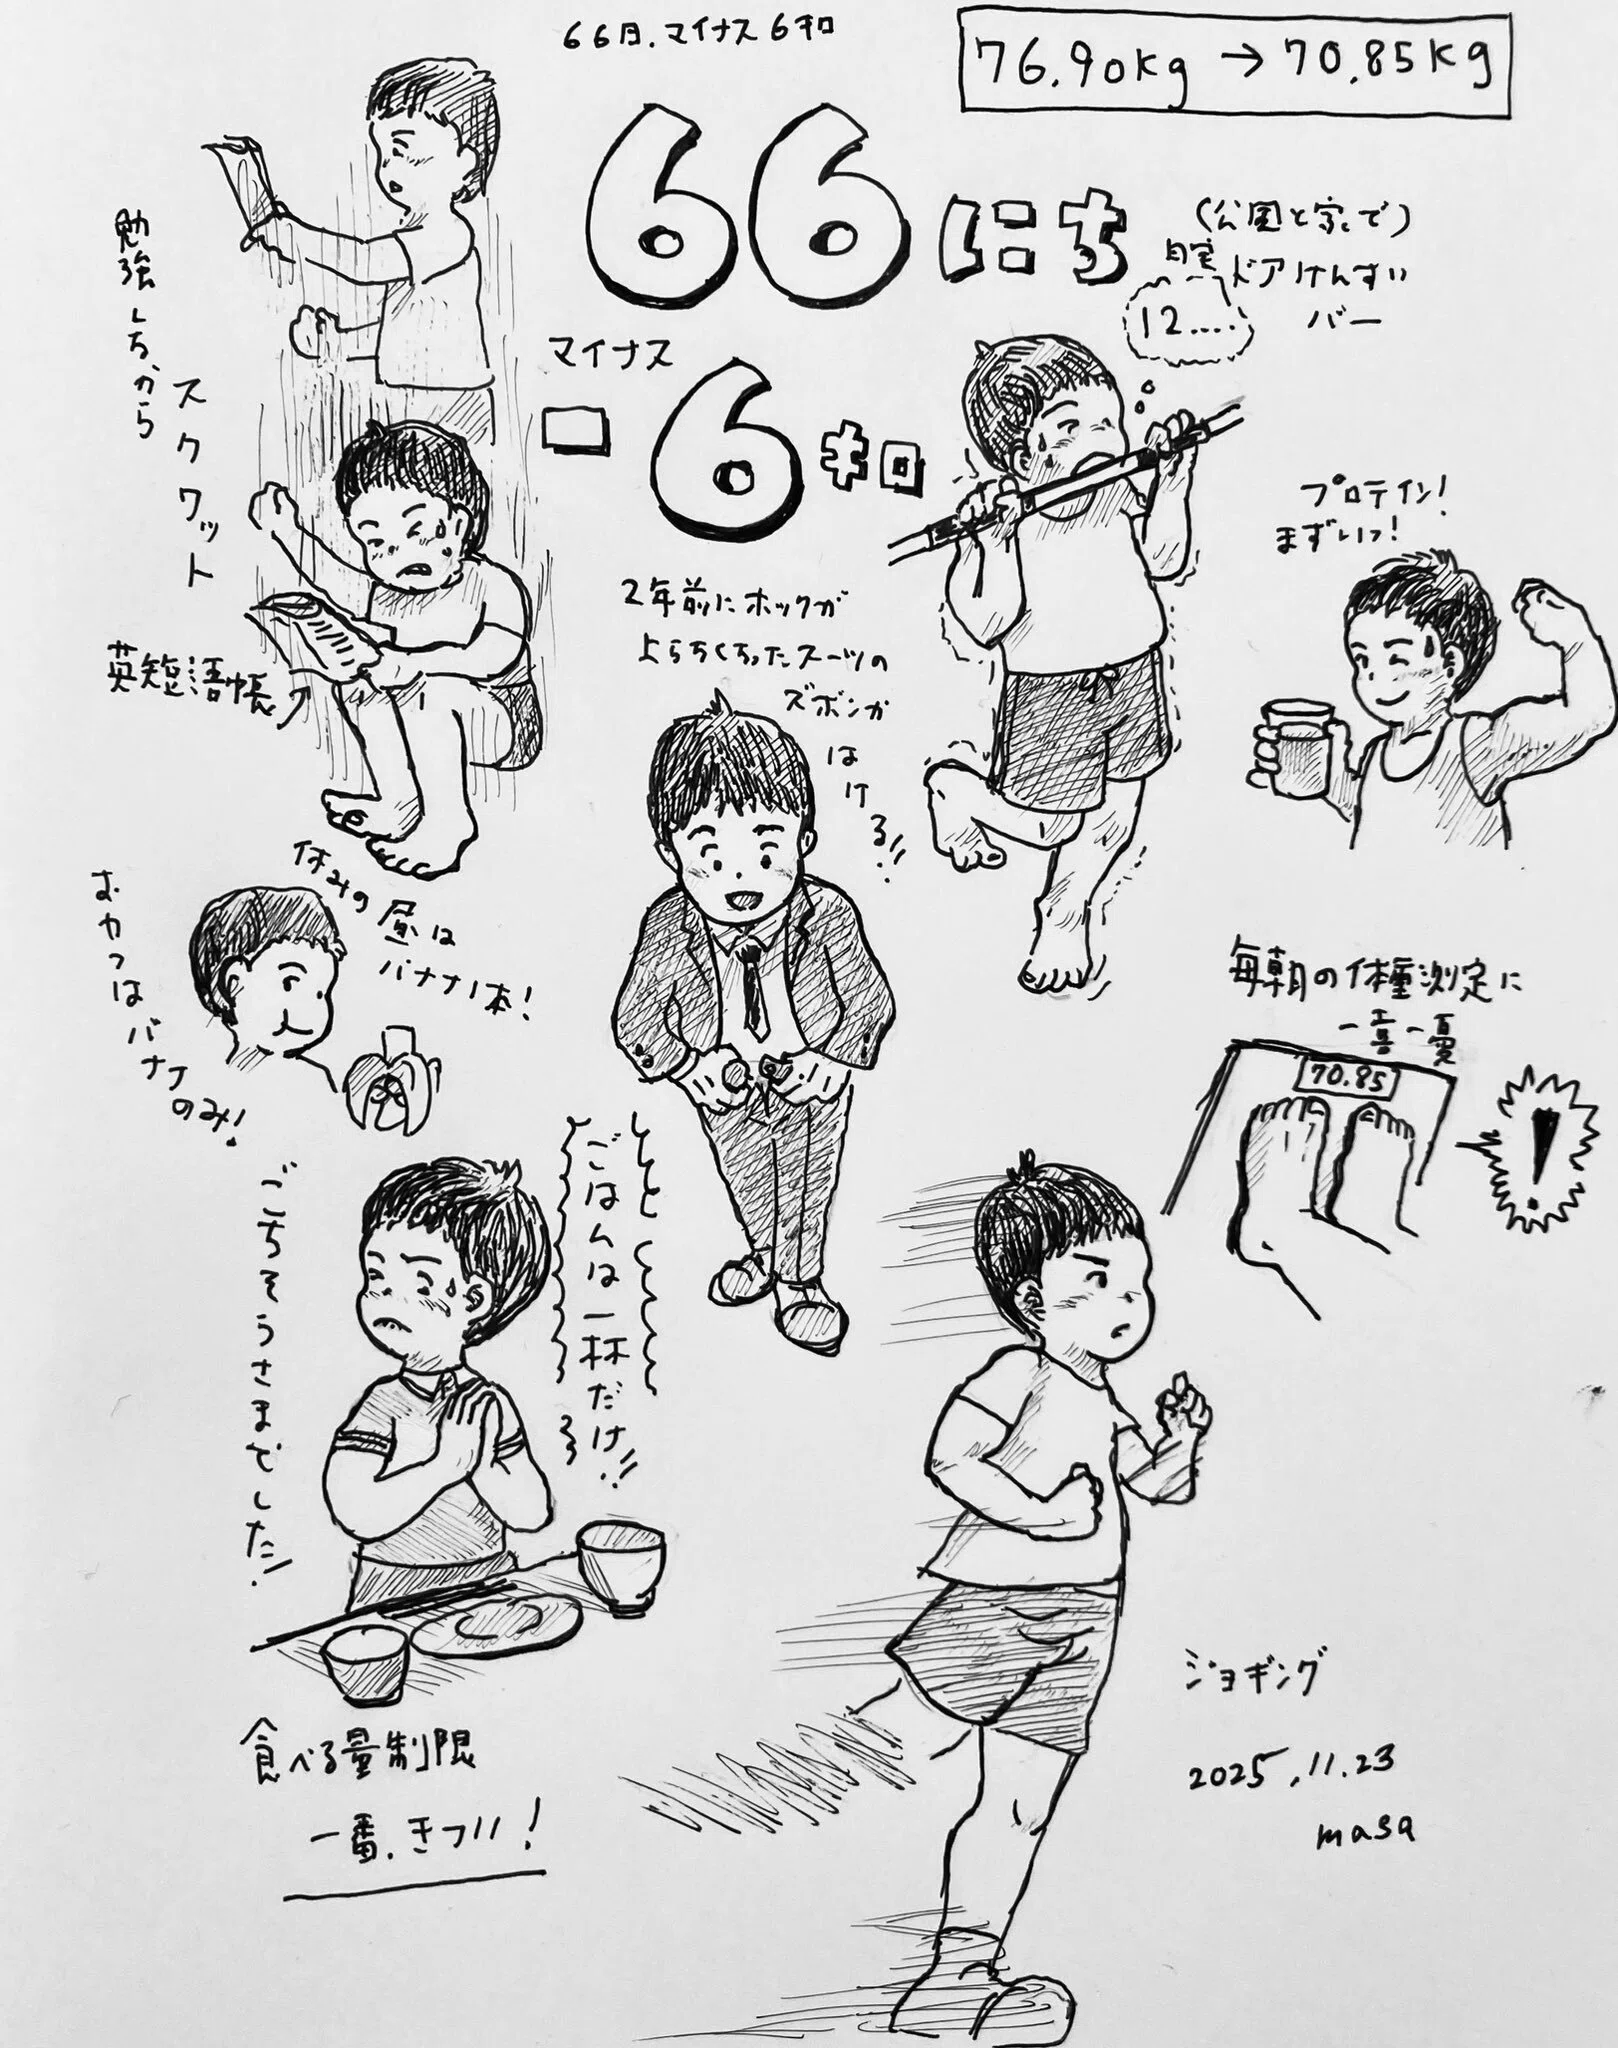 66日.マイナス6キロ
76.90kg → 70.85kg
66にち
マイナス
-6キロ
(公園と家で)
自宅ドアけんすい
バー
12....
勉強しながら
スクワット
英短語帳
プロテイン!
まずいっ!
2年前にホックが
とらなくなったスーツの
ズボンが
はける!!
休みの昼は
バナナ1本!
おやつはバナナのみ!
毎朝の体重測定に
一喜一憂
70.85
!
ごはんは一杯だけ!!
ごちそうさまでした!
食べる量制限
一番.きつい!
ジョギング
2025.11.23
masa